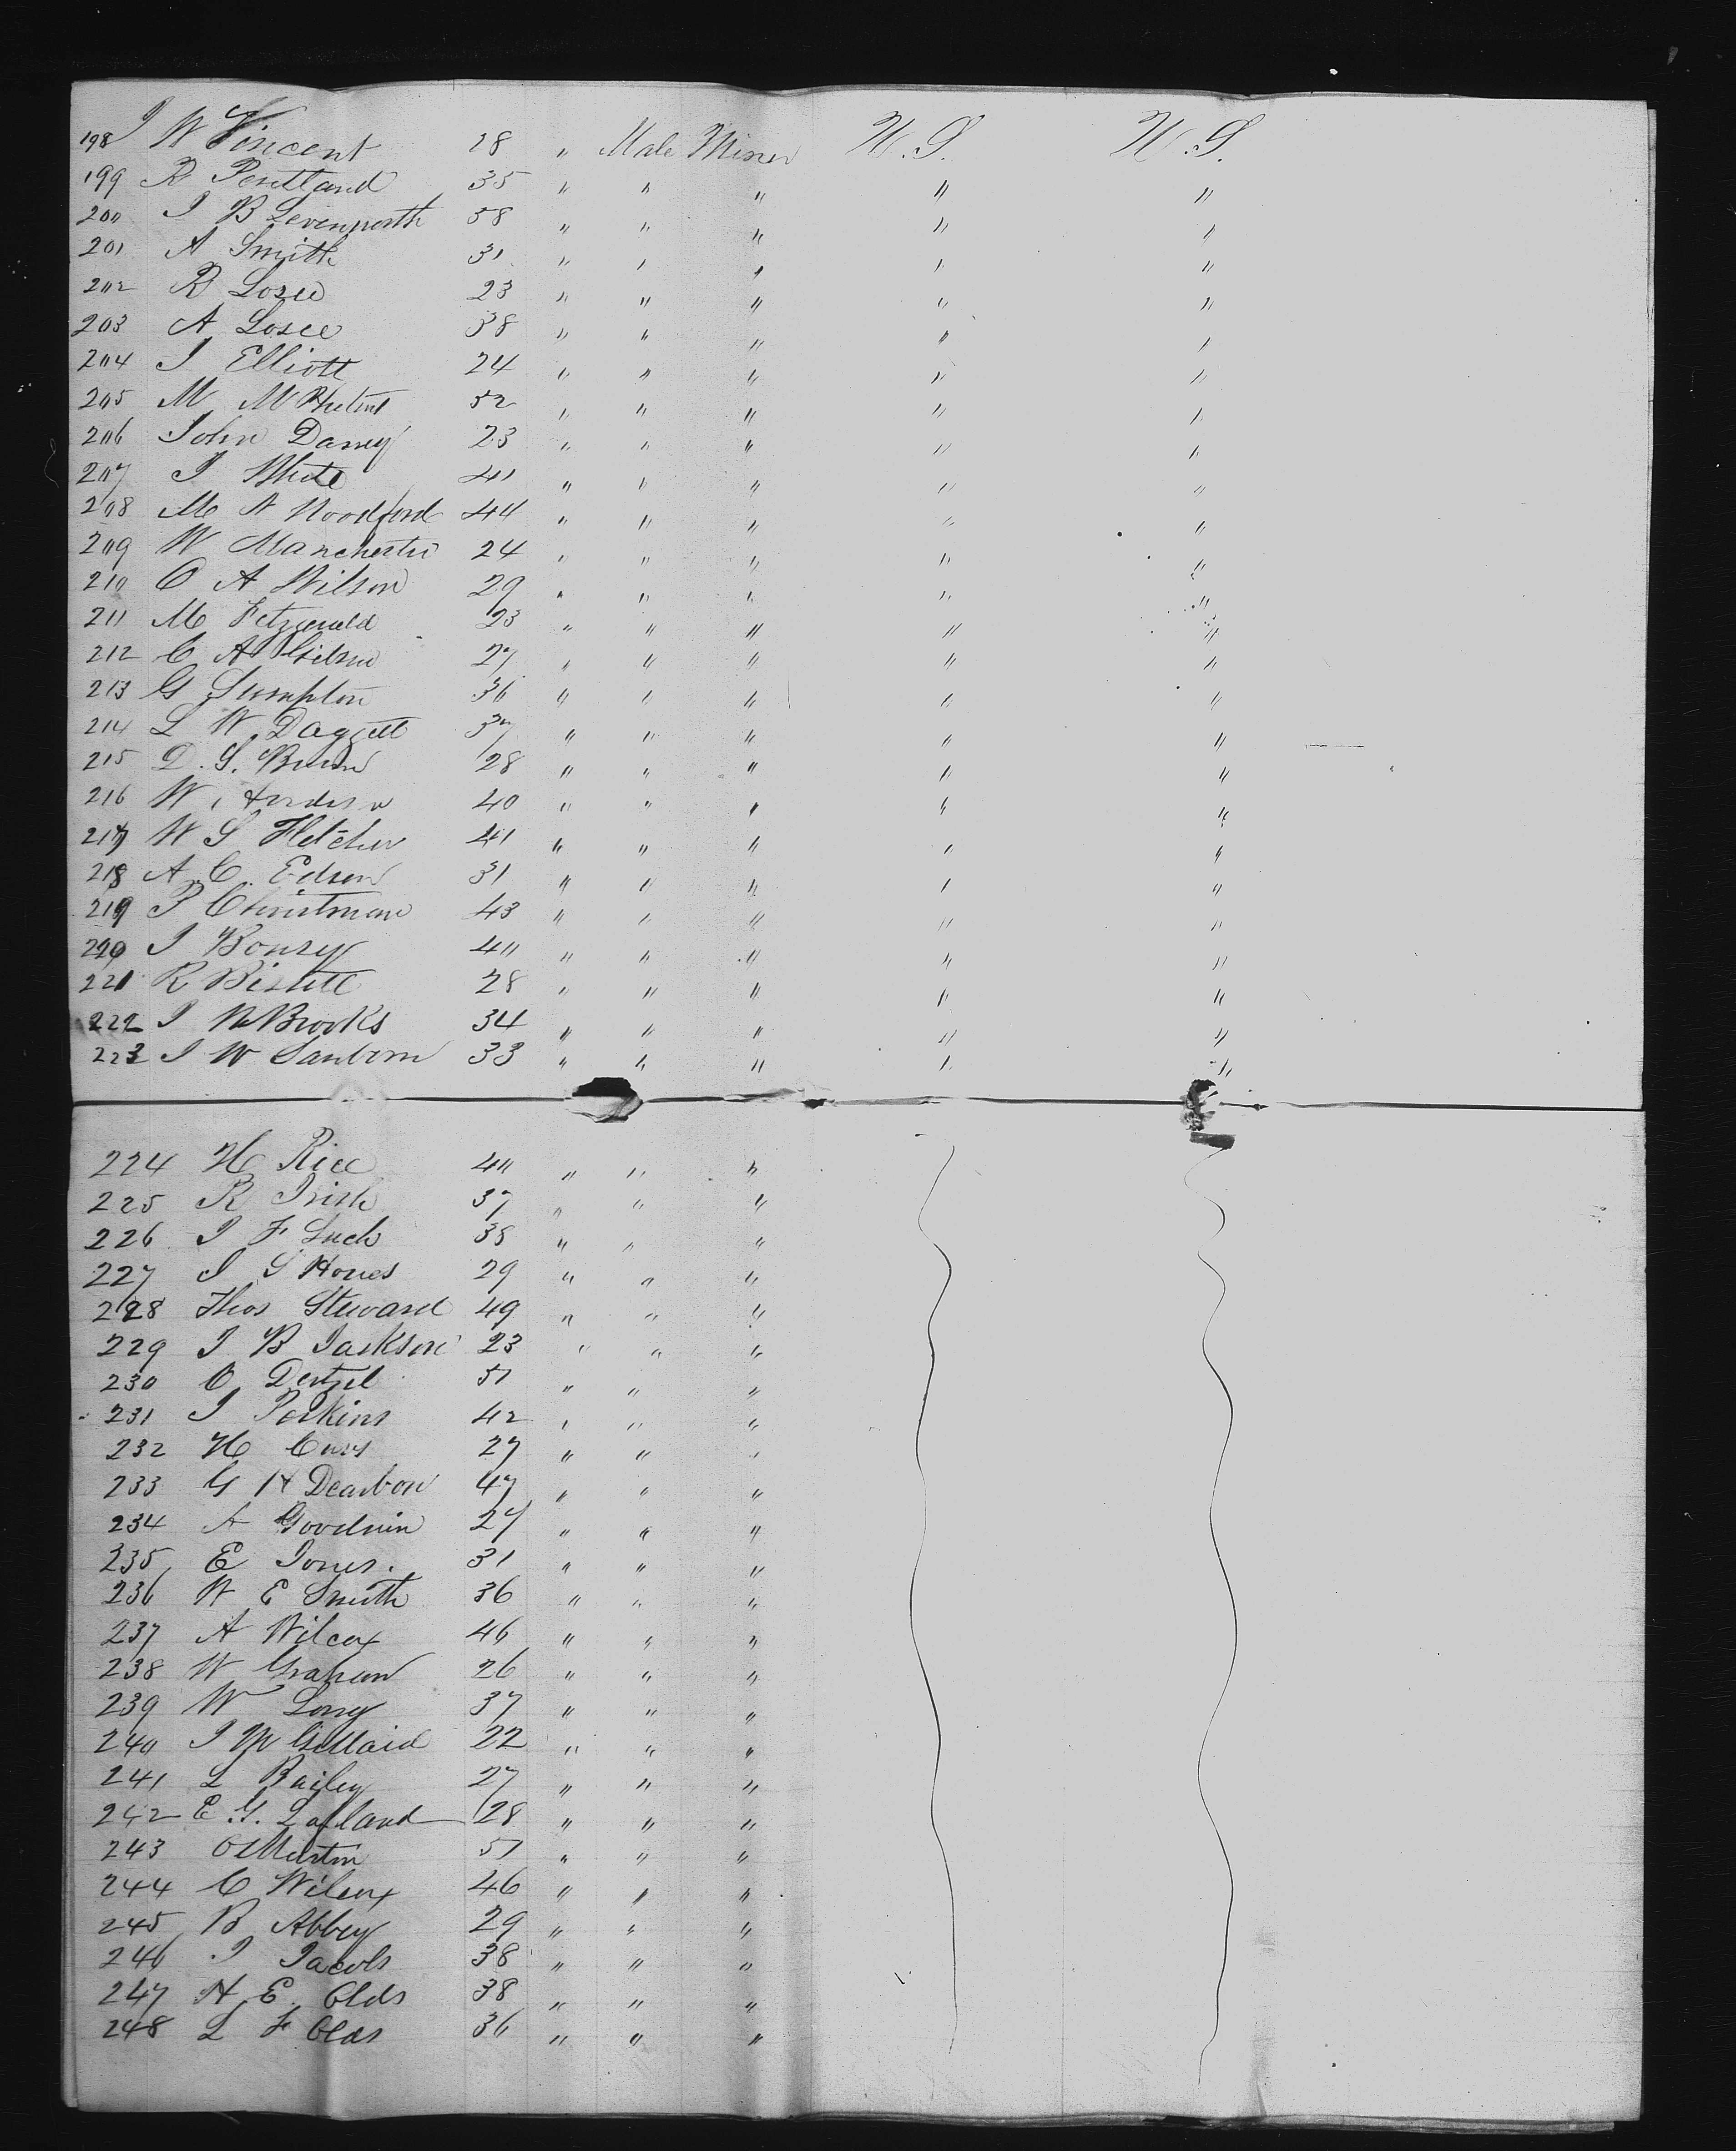 198 J W Vincent 28 " Male Miner U.S. U.S.
199 R Pentland 35 " " " " "
200 J B Levenworth 38 " " " " "
201 A Smith 31 " " " " "
202 R Losee 23 " " " " "
203 A Losee 38 " " " " "
204 J Elliott 24 " " " " "
205 M 52 " " " " "
206 John Daney 23 " " " " "
207 J White 41 " " " " "
208 M A Woodford 44 " " " " "
209 W Manchester 24 " " " " "
210 O A Wilson 29 " " " " "
211 M Fitzgerald 23 " " " " "
212 C A Gilson 27 " " " " "
213 G Sumpton 36 " " " " "
214 L W Daggett 37 " " " " "
215 D. S. 28 " " " " "
216 W. Anderson 40 " " " " "
217 W S Fletcher 41 " " " " "
218 A. C. Edson 31 " " " " "
219 P Christman 43 " " " " "
220 J Bonsey 40 " " " " "
221 R 28 " " " " "
222 J Brooks 34 " " " " "
223 J W Sanborn 33 " " " " "
224 H Rice 40 " " "
225 R Irish 37 " " "
226 J F Luck 38 " " "
227 J S Hones 29 " " "
228 Thos Steward 49 " " "
229 J B Jackson 23 " " "
230 C 51 " " "
231 J Perkins 42 " " "
232 H 27 " " "
233 G H Dearbon 47 " " "
234 A Goodwin 27 " " "
235 E Jones. 31 " " "
236 W E Smith 36 " " "
237 A Wilcox 46 " " "
238 W Graham 26 " " "
239 W Long 37 " " "
240 J M 22 " " "
241 L Bailey 27 " " "
242 E G. Lafland 28 " " "
243 O Martin 51 " " "
244 C Wilcox 46 " " "
245 B Abbey 29 " " "
246 J Jacobs 38 " " "
247 H E. Olds 38 " " "
248 L F Olds 36 " " "